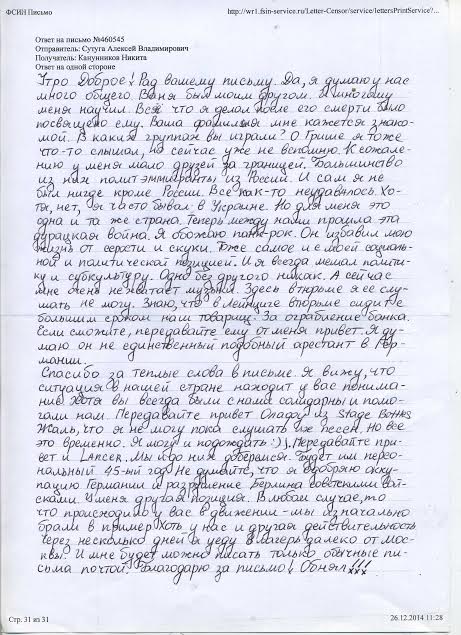 ФСИН Письмо http://wr1.fsin-service.ru/Letter-Censor/service/lettersPrintService?...
Ответ на письмо №460545
Отправитель: Сутуга Алексей Владимирович
Получатель: Канунников Никита
Ответ на одной стороне
Утро Доброе! Рад вашему письму. Да, я думаю у нас
много общего. Ваня был моим другом. И многому
меня научил. Всё что я делал после его смерти было
посвящено ему. Ваша фамилия мне кажется знако-
мой. В каких группах вы играли? О Грише я тоже
что-то слышал, но сейчас уже не вспомню. К сожале-
нию у меня мало друзей за границей. Большинство
из них политэммигранты из России. И сам я не
был нигде кроме России. Все как-то неудавалось. Хо-
тя, нет, я часто бывал в Украине. Но для меня это
одна и та же страна. Теперь между нами прошла эта
дурацкая война. Я обожаю панк-рок. Он избавил мою
жизнь от серости и скуки. Тоже самое и с моей социаль-
ной и политической позицией. И я всегда мешал полити-
ку и субкультуру. Одно без другого никак. А сейчас
мне очень не хватает музыки. Здесь в тюрьме я ее слу-
шать не могу. Знаю, что в Лейпциге втюрьме сидит не
большим сроком наш товарищ. За ограбление банка.
Если сможете, передавайте ему от меня привет. Я ду-
маю он не единственный подобный арестант в Гер-
мании.
Спасибо за теплые слова в письме. Я вижу, что
ситуация в нашей стране находит у вас понима-
ние. Хотя вы всегда были с нами солидарны и помо-
гали нам. Передавайте привет из Stage Bottles
Жаль, что я не могу пока слушать их песен. Но все
это временно. Я могу и подождать :). Передавайте при-
вет и Lancer. Мы и до них доберемся. Будет им персо-
нальный 45-ый год. Не думайте, что я одобряю окку-
пацию Германии и разрушение Берлина советскими вой-
сками. У меня другая позиция. В любом случае, то
что происходило у вас в движении - мы изначально
брали в пример. Хоть у нас и другая действительность
Через несколько дней я уеду в лагерь далеко от мос-
квы. И мне будет можно писать только обычные пи-
сьма почтой. Благодарю за письмо! Обнял!!!
Стр. 31 из 31 26.12.2014 11:28